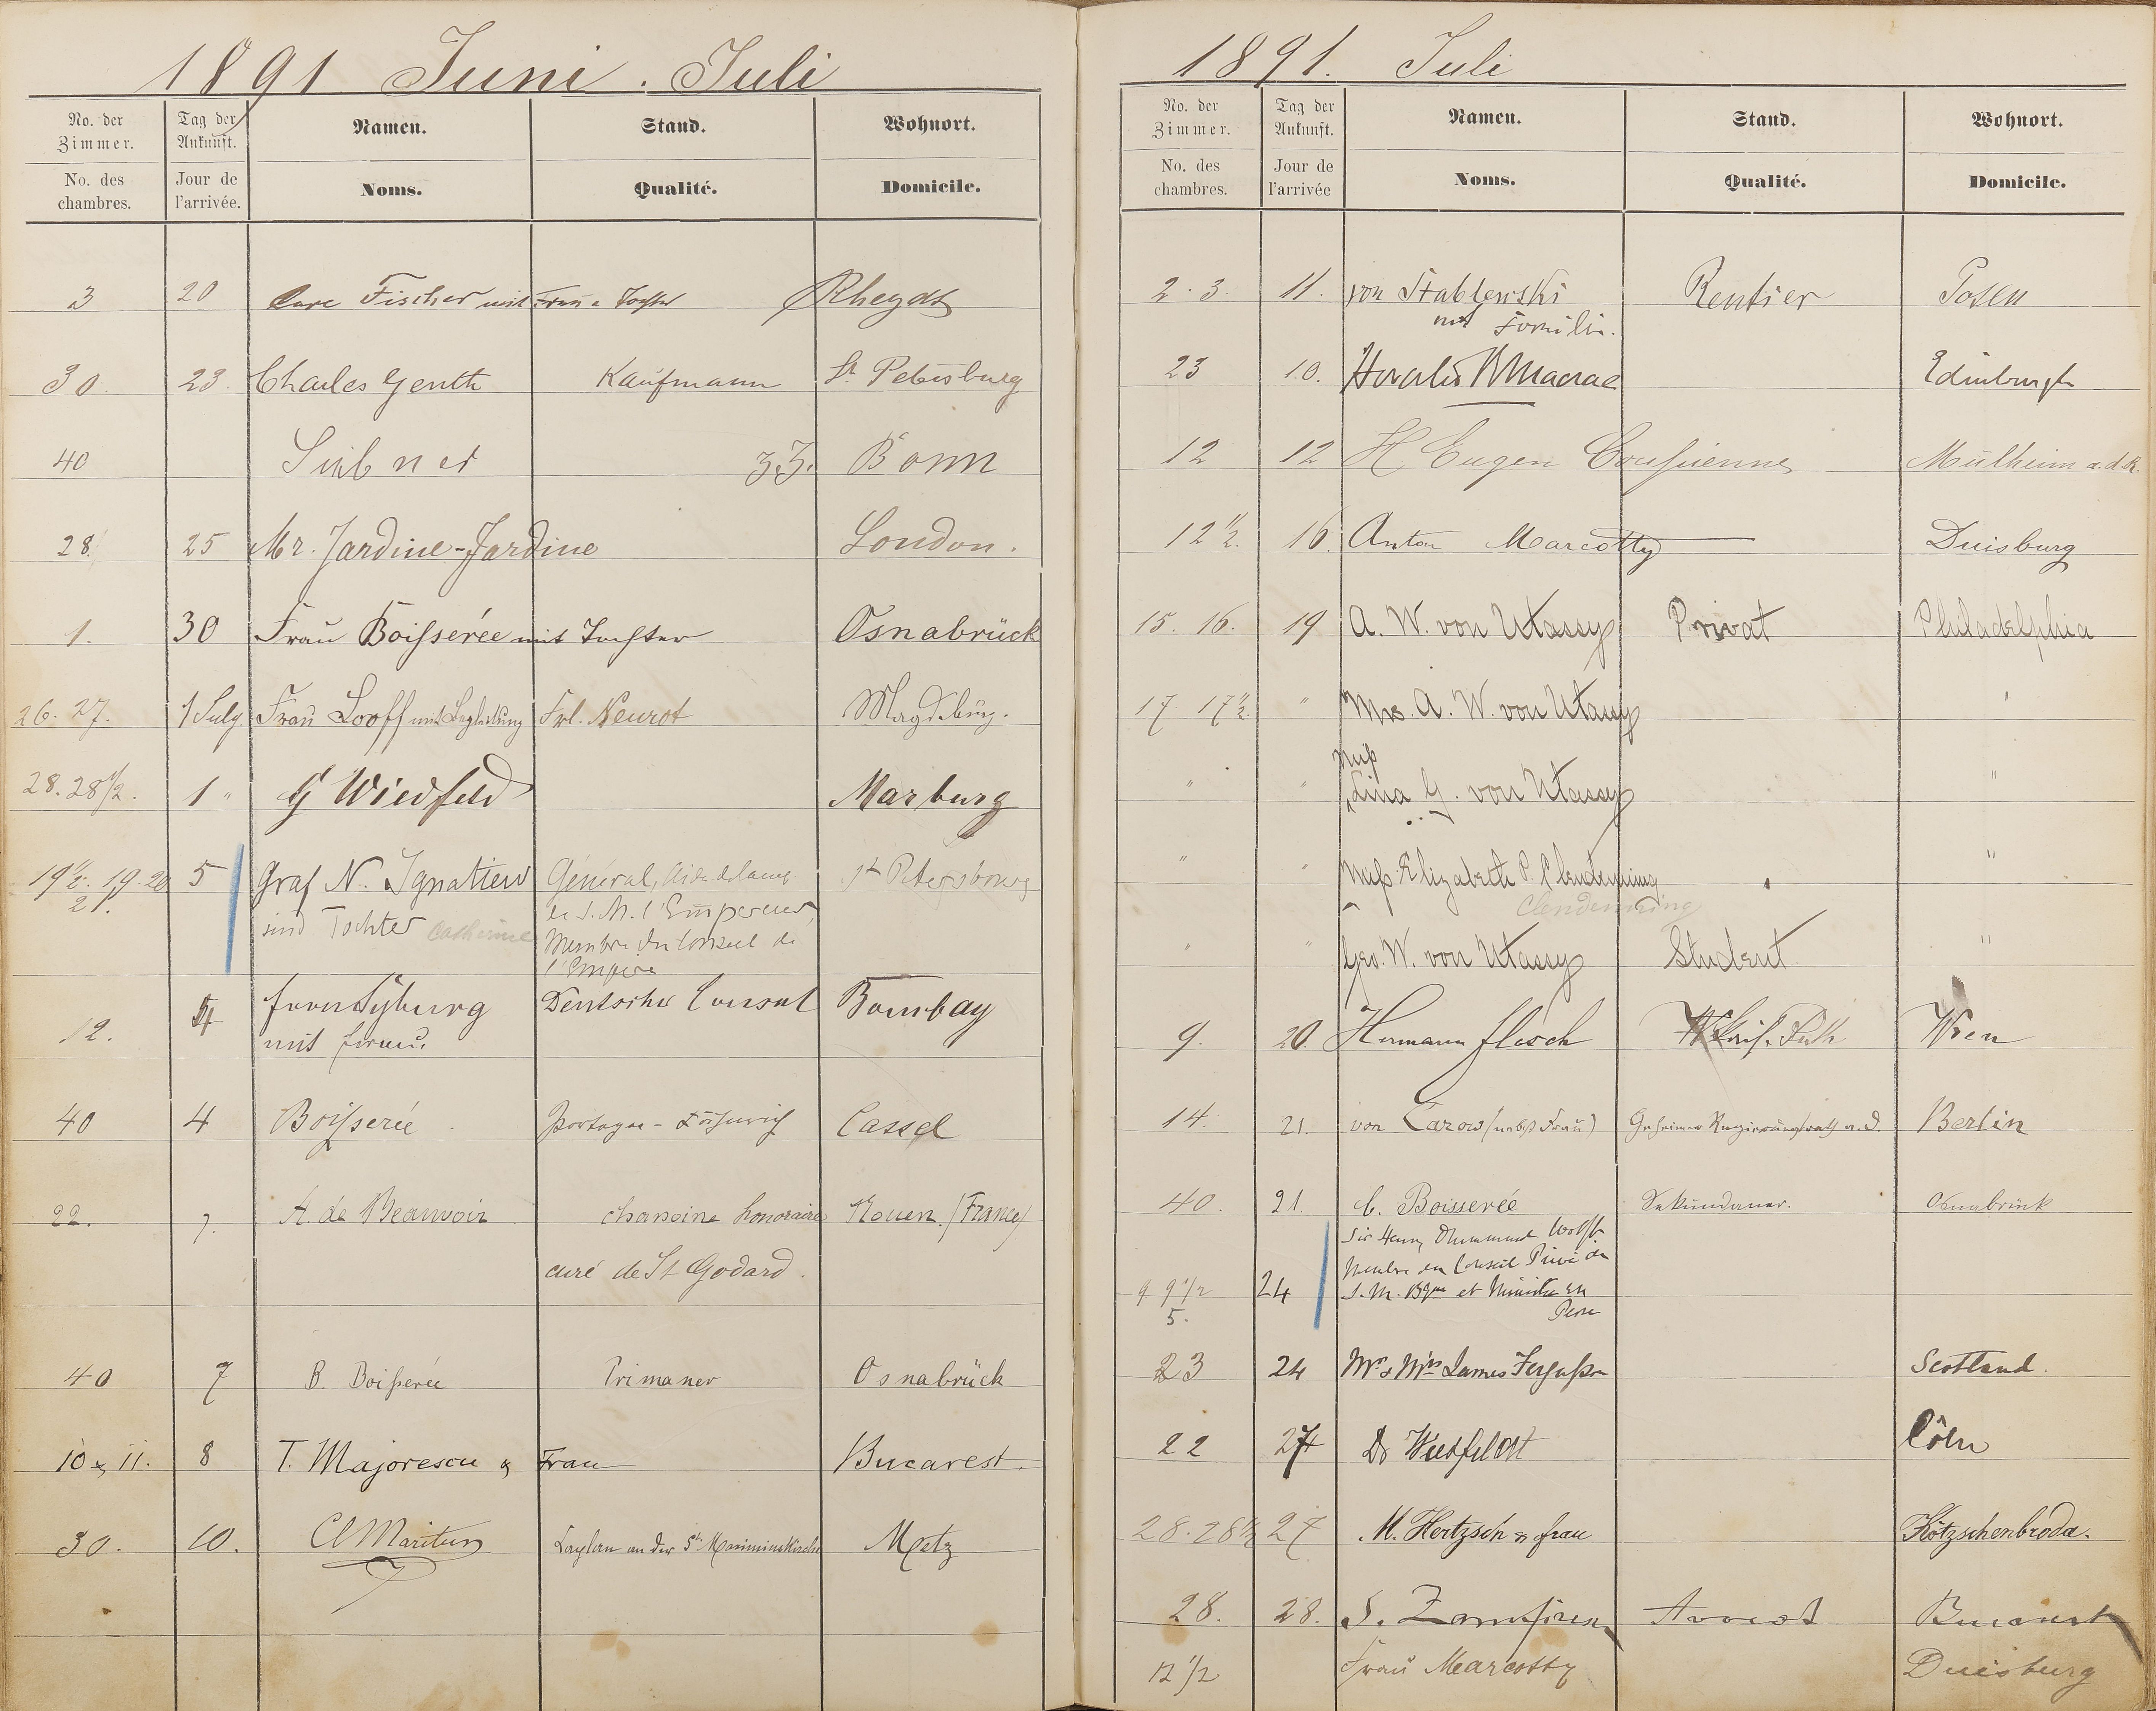 1891 Juni. Juli
No. der Zimmer. Tag der Ankunft. Namen. Stand. Wohnort.
No. des chambres. Jour de l'arrivée. Noms. Qualité. Domicile.
3 20 Fischer mit Frau u Tochter Rheydt
30. 23. Charles Genth Kaufmann St. Petersburg
40 Bonn
28. 25 Mr. Jardine-Jardine London.
1. 30 Frau Boisserée mit Tochter Osnabrück
26. 27. 1 July Frau Looff mit Begleitung Frl. Neurot Magdeburg.
28. 28 1/2. 1 " G Wiedfeld Marburg
19 1/2. 19. 20 5 Graf N. Ignatiew Général, Aide de camp St Petersbourg
21. und Tochter Catherine de S. M. l'Empereur,
Membre du Conseil de
l'Empire
12. Deutscher Consul Bombay
mit Frau.
40 4 Boisserée Cassel
22. 7. A. de Beauvoir chanoine honoraire Rouen. (France)
curé de St Godard.
40 7 B. Boisserée Primaner Osnabrück
10 & 11. 8 T. Majorescu & Frau Bucarest.
30. 10. Kaplan an der St. Maximinskirche Metz
1891. Juli
No. der Zimmer. Tag der Ankunft. Namen. Stand. Wohnort.
No. des chambres. Jour de l'arrivée Noms. Qualité. Domicile.
2. 3. 11. von Stablewski Rentier Posen
mit Familie.
23 10. Macrae Edinburgh
12 12 H Eugen Mülheim a. d. R.
12 1/2. 16. Anton Marcotty Duisburg
15. 16. 19 A. W. von Utassy Privat Philadelphia
17 17 1/2. " Mrs. A. W. von Utassy "
Miss
" " Lina G. von Utassy "
" " Miss Elizabeth P. Clendenning "
Clendenning
" " Geo. W. von Utassy Student "
9. 20. Hermann Flesch Wien
14. 21. von Carow (nebst Frau) Geheimer Regierungsrath a. D. Berlin
40. 21. C. Boisserée Sekundaner. Osnabrück
Sir Henry Drummond Wolff
Membre du Conseil Privé de
9 9 1/2 24 S. M. Bque et Ministre en
5. Perse
23 24 Mr & Mrs James Fergusson Scotland.
22 27 Dr Wiedfeldt Cöln
28. 28 1/2 27 M. Hertzsch & Frau Kötzschenbroda.
28. 28. S. Bucarest
12 1/2 Frau Marcotty Duisburg